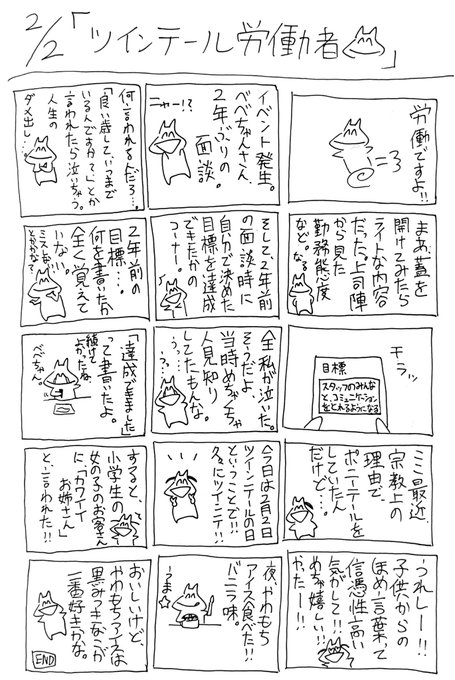 2/2「ツインテール労働者」
労働ですよ!!
=3
イベント発生。
べべちゃんさん、
2年ぶりの
面談。
ニャー!?
何言われるんだろ…。
「良い歳して、いつまで
いるんですか?」とか
言われたら泣いちゃう。
人生の
ダメ出し…
まあ、蓋を
開けてみたら
ライトな内容
だった。上司陣
から見た
勤務態度
など。
なる
そして、2年前
の面談時に
自分で決めた
目標を達成
できたかの
コーナー。
2年前の
目標…。
何を書いたか
全く覚えて
いない。
ミスしない
とかかな?
チラッ
目標
スタッフのみんな
と、コミュニケーション
をとれるようになる
全私が泣いた。
そうだよ、
当時めちゃくちゃ
人見知り
してたもんな。
うっ…
うっ…
「達成できました」
って書いたよ。
続けて
よかったね、
べべちゃん。
ミミ最近、
宗教上の
理由で、
ポニーテールを
していたん
だけど…。
今日は2月2日
ツインテールの日
ということで!!
久々にツインテ!!
すると、
小学生の
女の子のお客さん
に「カワイイ
お姉さん」
と、言われた!!
うれしー!!
子供からの
ほめ言葉って
信憑性高い
気がして!!
めちゃ嬉しい!!
やったー!!
夜、やわもち
アイス食べた!!
バニラ味。
うま
おいしいけど、
やわもちアイスは
黒みつきなこが
一番好きかな。
END